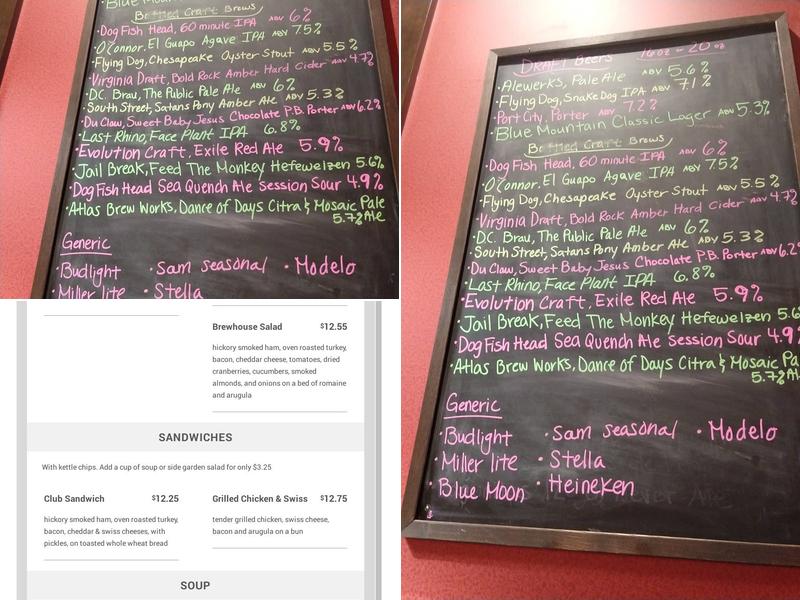 Bottled Craft Brews,
• Dog Fish Head, 60 minute IPA ABV 6%
• O'Connor, El Guapo Agave IPA ABV 7.5%
• Flying Dog, Chesapeake Oyster Stout ABV 5.5%
• Virginia Draft, Bold Rock Amber Hard Cider ABV 4.7%
• D.C. Brau, The Public Pale Ale ABV 6%
• South Street, Satans Pony Amber Ale ABV 5.3%
• Du Claw, Sweet Baby Jesus Chocolate P.B. Porter ABV 6.2%
• Last Rhino, Face Plant IPA 6.8%
• Evolution Craft, Exile Red Ale 5.9%
• Jail Break, Feed The Monkey Hefeweizen 5.6%
• Dog Fish Head Sea Quench Ale Session Sour 4.9%
• Atlas Brew Works, Dance of Days Citra & Mosaic Pale
5.7% Ale
Generic
• Budlight • Sam seasonal • Modelo
• Miller lite • Stella
Brewhouse Salad $12.55
hickory smoked ham, oven roasted turkey,
bacon, cheddar cheese, tomatoes, dried
cranberries, cucumbers, smoked
almonds, and onions on a bed of romaine
and arugula
SANDWICHES
With kettle chips. Add a cup of soup or side garden salad for only $3.25
Club Sandwich $12.25
hickory smoked ham, oven roasted turkey,
bacon, cheddar & swiss cheeses, with
pickles, on toasted whole wheat bread
Grilled Chicken & Swiss $12.75
tender grilled chicken, swiss cheese,
bacon and arugula on a bun
SOUP
DRAFT Beers 16oz or 20oz
• Alewerks, Pale Ale ABV 5.6%
• Flying Dog, Snake Dog IPA ABV 7.1%
• Port City, Porter 7.2%
• Blue Mountain Classic Lager ABV 5.3%
Bottled Craft Brews,
• Dog Fish Head, 60 minute IPA ABV 6%
• O'Connor, El Guapo Agave IPA ABV 7.5%
• Flying Dog, Chesapeake Oyster Stout ABV 5.5%
• Virginia Draft, Bold Rock Amber Hard Cider ABV 4.7%
• D.C. Brau, The Public Pale Ale ABV 6%
• South Street, Satans Pony Amber Ale ABV 5.3%
• Du Claw, Sweet Baby Jesus Chocolate P.B. Porter ABV 6.2%
• Last Rhino, Face Plant IPA 6.8%
• Evolution Craft, Exile Red Ale 5.9%
• Jail Break, Feed The Monkey Hefeweizen 5.6
• Dog Fish Head Sea Quench Ale Session Sour 4.9%
• Atlas Brew Works, Dance of Days Citra & Mosaic Pa
5.7% Al
Generic
• Budlight • Sam seasonal • Modelo
• Miller lite • Stella
• Blue Moon • Heineken